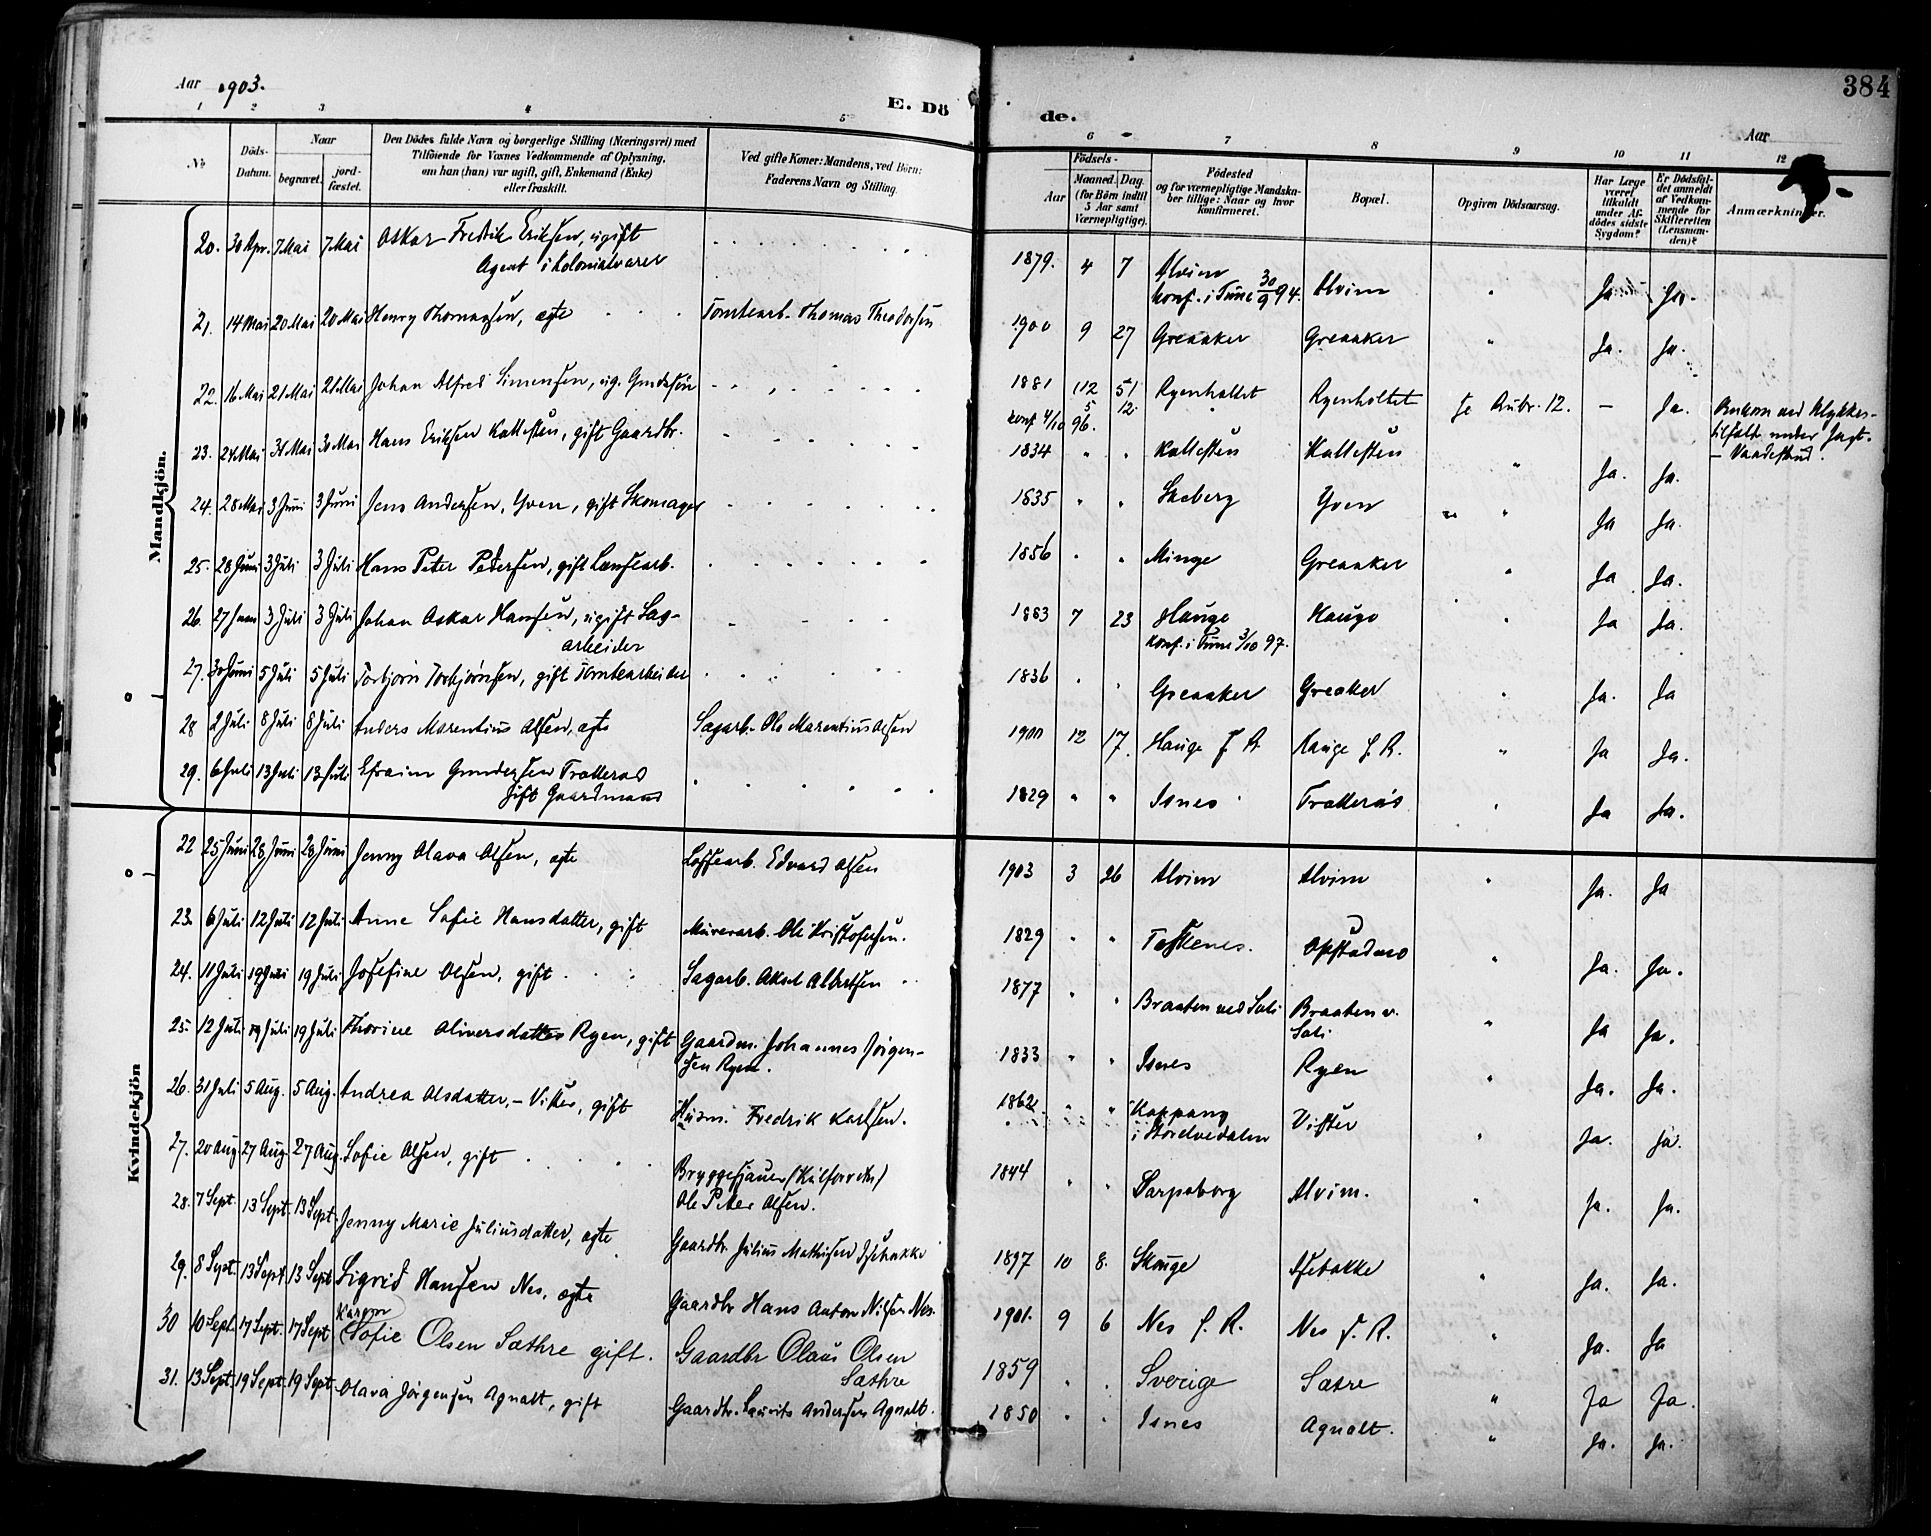 384
Aar 1903.
E. Dö
de.
Aar
1 2 3 4 5 6 7 8 9 10 11 12
No
Döds-
Datum.
Naar
begravet.
jord-
fæstet.
Den Dödes fulde Navn og borgerlige Stilling (Næringsvei) med
Tilføiende for Voxnes Vedkommende af Oplysning,
om han (hun) var ugift, gift, Enkemand (Enke)
eller fraskilt.
Ved gifte Koner: Mandens, ved Børn:
Faderens Navn og Stilling.
Födsels-
Aar
Maaned. Dag.
(for Börn indtil
5 Aar samt
Værnepligtige).
Födested
og for værnepligtige Mandska-
ber tillige: Naar og hvor
konfirmeret.
Bopæl.
Opgiven Dödsaarsag.
Har Læge
været
tilkaldt
under Af-
dödes sidste
Sygdom?
Er Dödsfal-
det anmeldt
af Vedkom-
mende for
Skifteretten
(Lensman-
den)?
Anmærkninger.
Mandkjön.
20. 30 Apr. 7 Mai 7 Mai Oskar Fredrik Eriksen, ugift 1879. 4 7 Alvim Alvim " Ja Ja.
Agent i Kolonialvarer konf. i Tune 30/9 94.
21. 14 Mai 20 Mai 20 Mai Henry Thomassen, ægte Tomtearb. Thomas Theodorsen 1900 9 27 Greaaker Greaaker " Ja. Ja.
22. 16 Mai 21 Mai 21 Mai Johan Alfred Simensen, ug. 1881 12 5 Ryenholtet Ryenholtet Se Rubr. 12. – Ja. Omkom ved Ulykkes-
konf 4/10 96. tilfælde under Jagt.
– Vaadeskud.
23. 24 Mai 31 Mai 31 Mai Hans Eriksen Kallesten, gift Gaardbr. 1834 " " Kallesten Kallesten " Ja. Ja.
24. 28 Mai 3 Juni 3 Juni Jens Andersen, Yven, gift Skomager 1835 " " Skeberg Yven " Ja Ja.
25. 28 Juni 3 Juli 3 Juli Hans Peter Pedersen, gift Lænsearb. 1856 " " Minge Greaaker " Ja Ja.
26. 27 Juni 3 Juli 3 Juli Johan Oskar Hansen, ugift Sag- 1883 7 23 Hauge Hauge " Ja Ja.
arbeider konf. i Tune 3/10 97.
27. 30 Juni 5 Juli 5 Juli Torbjørn Torbjørnsen, gift Tomtearbeider 1836 " " Greaaker Greaker " Ja. Ja
28 2 Juli 8 Juli 8 Juli Anders Marentius Olsen, ægte Sagarb. Ole Marentius Olsen 1900 12 17. Hauge f. R. Hauge f. R. " Ja Ja.
29. 6 Juli 13 Juli 13 Juli Efraim Gundersen Tratterød 1829 " " Isnes Tratterød " Ja Ja.
gift Gaardmand
Kvindekjön
22 25 Juni 28 Juni 28 Juni Jenny Olava Olsen, ægte Edvard Olsen 1903 3 26 Alvim Alvim " Ja. Ja
23. 6 Juli 12 Juli 12 Juli Anne Sofie Hansdatter, gift Murerarb. Ole Kristofersen. 1829 " " Opstadmo " Ja. Ja.
24. 11 Juli 19 Juli 19 Juli Josefine Olsen, gift Sagarb. Aksel Albertsen 1877 " " Braaten ved Soli Braaten v. " Ja Ja.
Soli
25. 12 Juli 19 Juli 19 Juli Thorine Oliversdatter Ryen, gift Gaardm. Johannes Jørgen- 1833 " " Isnes Ryen " Ja. Ja.
sen Ryen.
26. 31 Juli 5 Aug. 5 Aug. Andrea Olsdatter, – Vister, gift Husm. Fredrik Karlsen. 1862 " " Koppang Vister " Ja. Ja.
i Storelvedalen
27. 20 Aug 27 Aug. 27 Aug. Sofie Olsen, gift Bryggesjauer 1844 " " Sarpsborg Alvim. " Ja. Ja.
Ole Peter Olsen.
28. 7 Sept. 13 Sept. 13 Sept. Jenny Marie Juliusdatter, ægte Gaardbr. Julius Mathisen 1897 10 8. Skouge " Ja. Ja.
29. 8 Sept. 13 Sept. 13 Sept Sigrid Hansen Nes, ægte Gaardbr Hans Anton Nilsen Nes. 1901. 9 6 Nes f. R. Nes f. R. " Ja. Ja
30 10 Sept. 17 Sept. 17 Sept Karen Sofie Olsen Sæthre gift. Gaardbr Olaus Olsen 1859 " " Sverige Sætre " Ja Ja.
Sæthre
31. 13 Sept. 19 Sept. 19 Sept. Olava Jørgensen Agnalt, gift Gaardbr. Laurits Andersen Agnalt. 1850 " " Isnes Agnalt. " Ja. Ja.